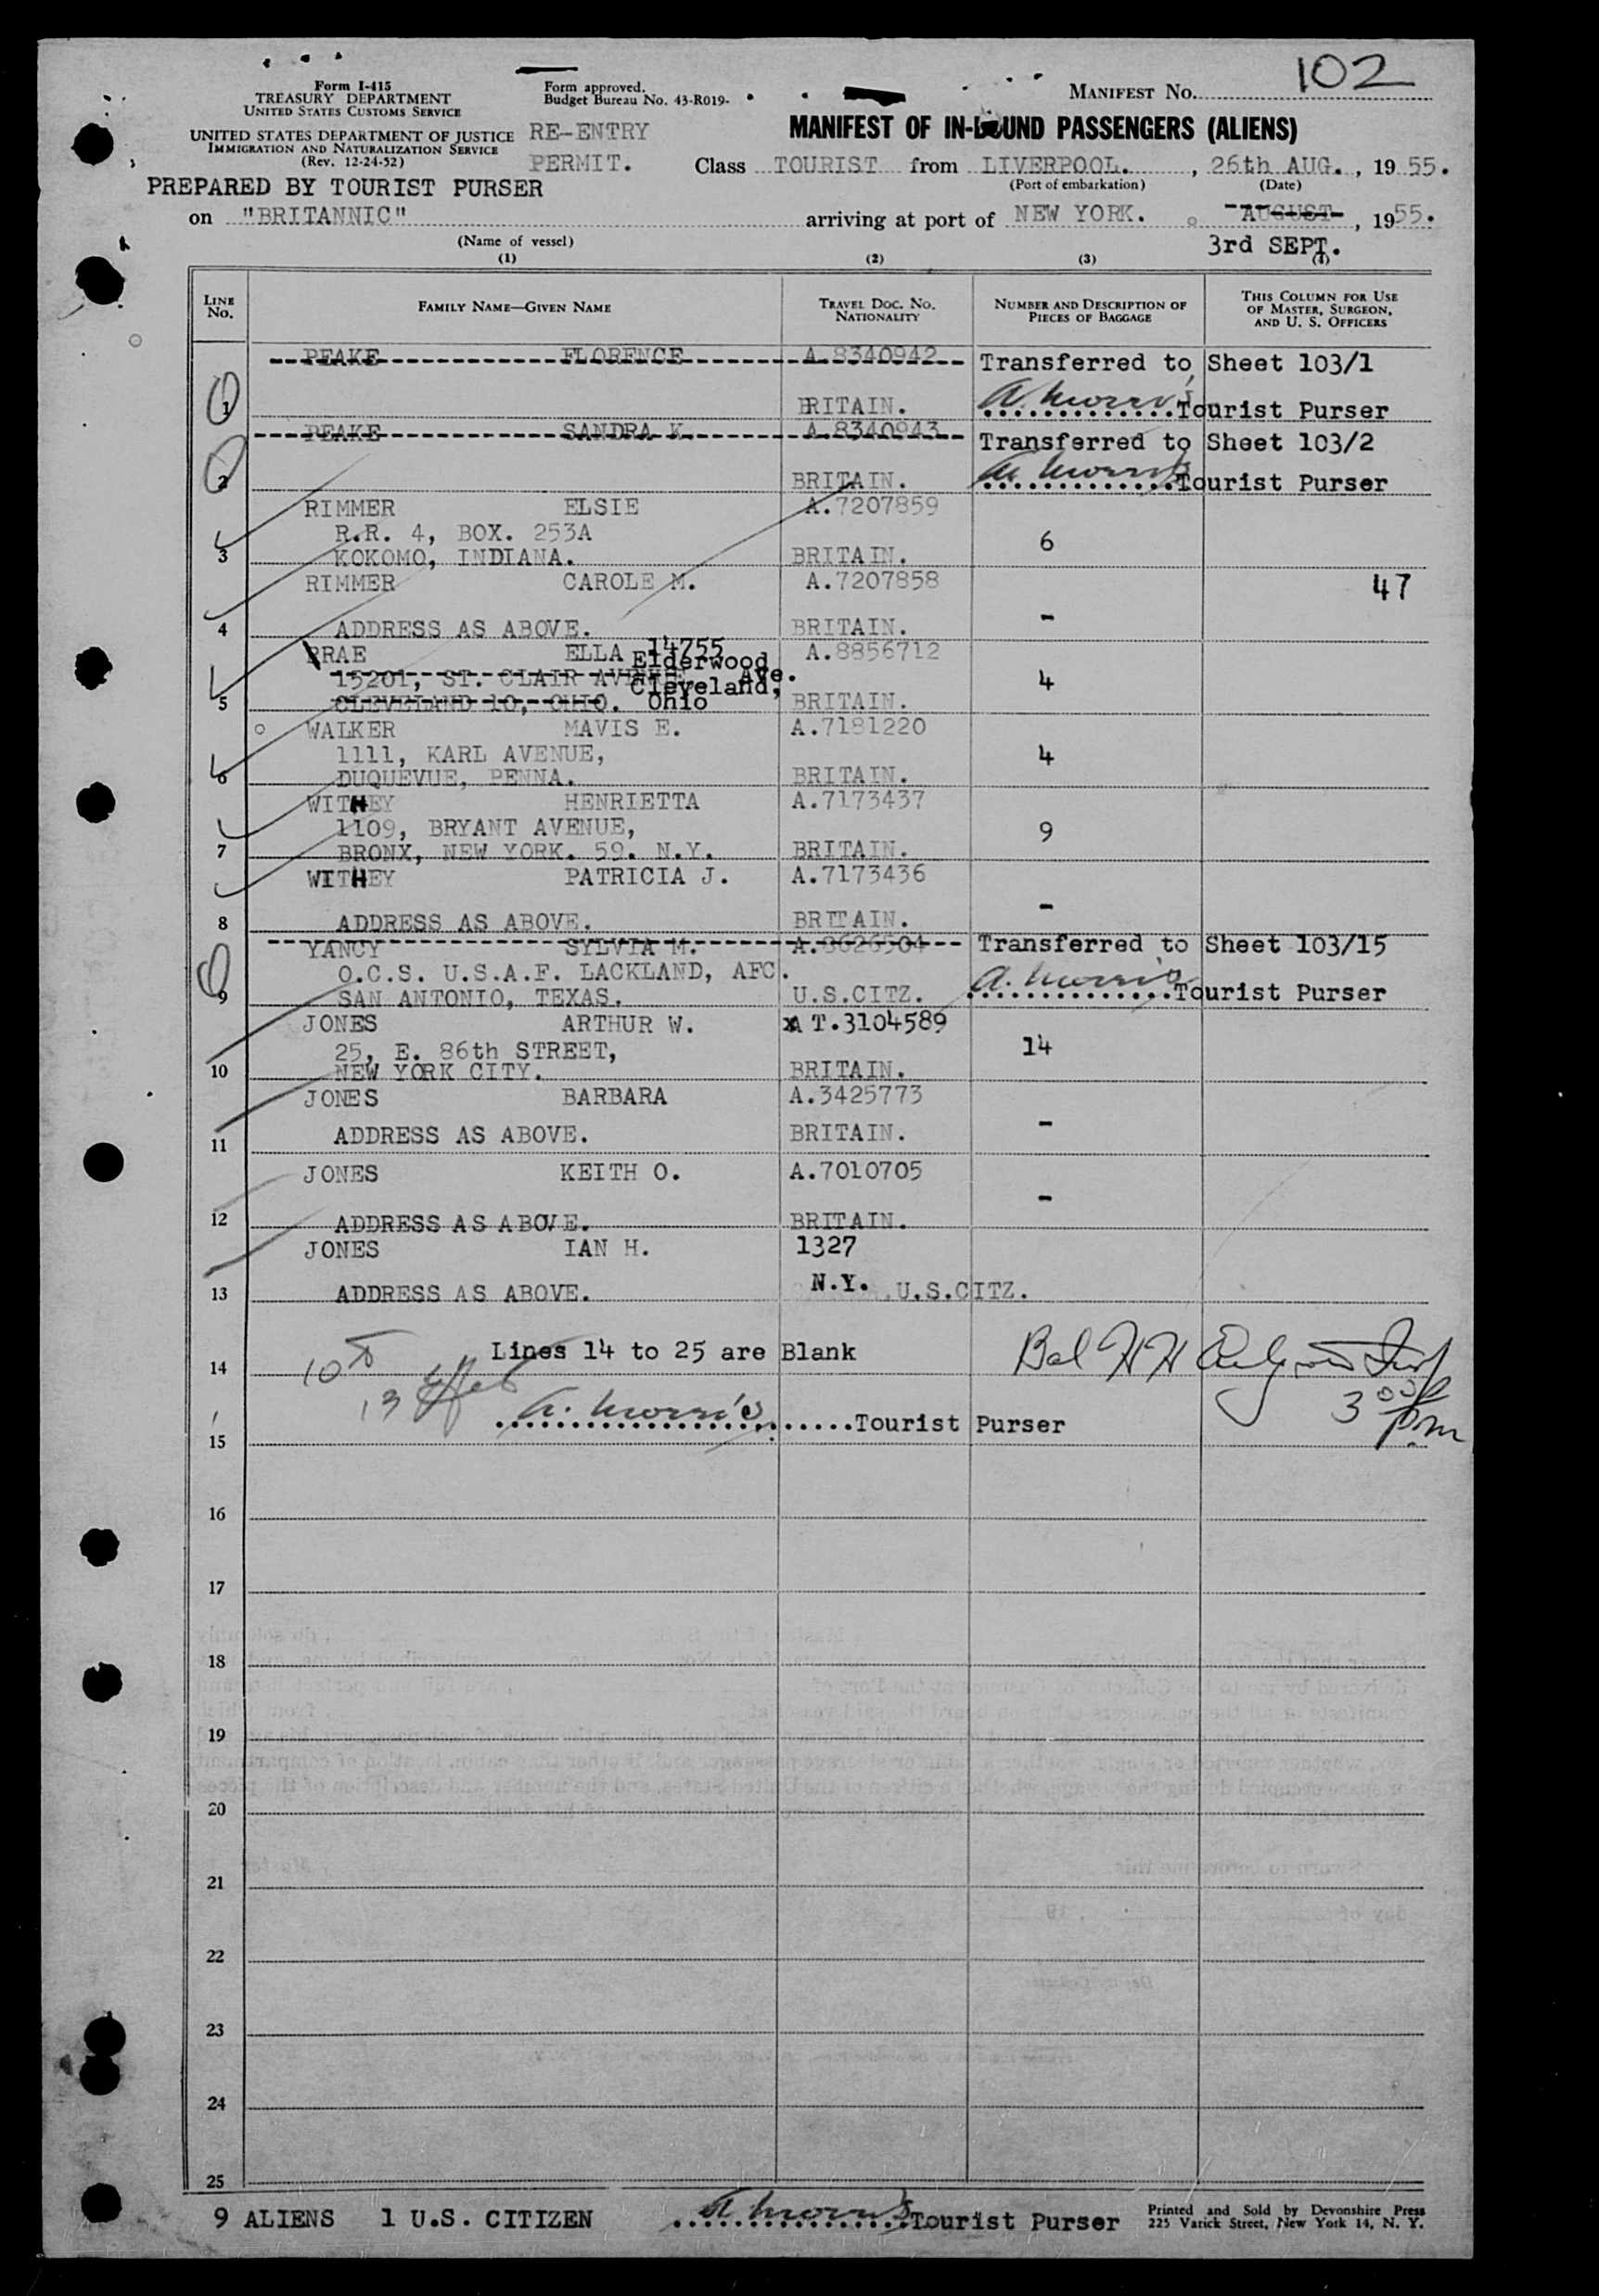 102
Form I-415
TREASURY DEPARTMENT
UNITED STATES CUSTOMS SERVICE
UNITED STATES DEPARTMENT OF JUSTICE
IMMIGRATION AND NATURALIZATION SERVICE
(Rev. 12-24-52)
Form approved.
Budget Bureau No. 43-R019-
RE-ENTRY
PERMIT.
MANIFEST NO.
MANIFEST OF IN-BOUND PASSENGERS (ALIENS)
Class TOURIST from LIVERPOOL. , 26th AUG. , 19 55.
(Port of embarkation) (Date)
PREPARED BY TOURIST PURSER
on "BRITANNIC" arriving at port of NEW YORK. AUGUST , 19 55.
(Name of vessel) 3rd SEPT.
(1) (2) (3) (4)
LINE NO.
FAMILY NAME—GIVEN NAME
TRAVEL DOC. NO. NATIONALITY
NUMBER AND DESCRIPTION OF PIECES OF BAGGAGE
THIS COLUMN FOR USE OF MASTER, SURGEON, AND U. S. OFFICERS
PEAKE FLORENCE A.8340942 Transferred to Sheet 103/1
1 BRITAIN. A. Morris Tourist Purser
PEAKE SANDRA K. A.8340943 Transferred to Sheet 103/2
2 BRITAIN. A. Morris Tourist Purser
RIMMER ELSIE A.7207859
R.R. 4, BOX. 253A 6
3 KOKOMO, INDIANA. BRITAIN.
RIMMER CAROLE M. A.7207858 47
4 ADDRESS AS ABOVE. BRITAIN. -
BRAE ELLA 14755 A.8856712
Elderwood Ave.
15201, ST. CLAIR AVENUE 4
Cleveland,
5 CLEVELAND 10, OHIO. Ohio BRITAIN.
WALKER MAVIS E. A.7181220
1111, KARL AVENUE, 4
6 DUQUEVUE, PENNA. BRITAIN.
WITHEY HENRIETTA A.7173437
1109, BRYANT AVENUE, 9
7 BRONX, NEW YORK. 59. N.Y. BRITAIN.
WITHEY PATRICIA J. A.7173436
8 ADDRESS AS ABOVE. BRITAIN. -
YANCY SYLVIA M. A.8626504 Transferred to Sheet 103/15
O.C.S. U.S.A.F. LACKLAND, AFC.
9 SAN ANTONIO, TEXAS. U.S.CITZ. A. Morris Tourist Purser
JONES ARTHUR W. T.3104589
25, E. 86th STREET, 14
10 NEW YORK CITY. BRITAIN.
JONES BARBARA A.3425773
11 ADDRESS AS ABOVE. BRITAIN. -
JONES KEITH O. A.7010705
12 ADDRESS AS ABOVE. BRITAIN. -
JONES IAN H. 1327
13 ADDRESS AS ABOVE. N.Y. U.S.CITZ.
Lines 14 to 25 are Blank
14
A. Morris Tourist Purser
3 00 pm
15
16
17
18
19
20
21
22
23
24
25
9 ALIENS 1 U.S. CITIZEN A. Morris Tourist Purser
Printed and Sold by Devonshire Press
225 Varick Street, New York 14, N. Y.